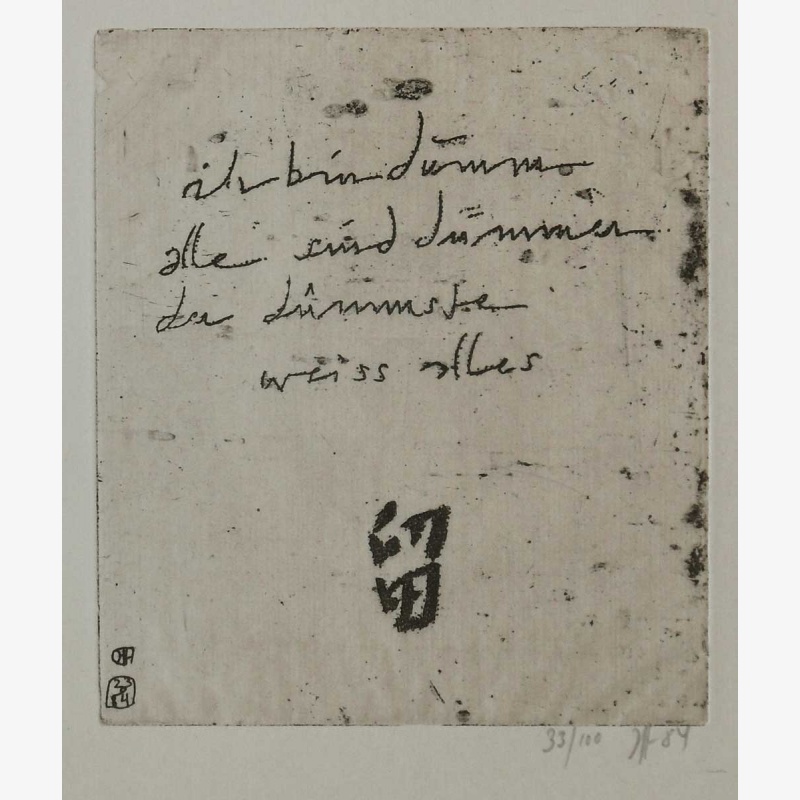 ich bin dümmer
alle sind dümmer
der dümmste
weiss alles
留
33/100 84